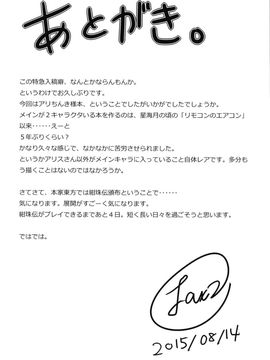 あとがき。
この特急入稿癖、なんとかならんもんか。
というわけでお久しぶりです。
今回はアリちんき様本、ことでしたがいかがでしたでしょうか。
メインが2キャラクタいる本を作るのは、星海月の頃の「リモコンのエアコン」
以来‥‥‥えーと
5年ぶりくらい？
かなり久々な感じで、なかなかに苦労させられました。
というかアリスさん以外がメインキャラに入っていること自体レアです。多分も
う描くことはないのではなかろうか。
さてさて、本家東方では紺珠伝頒布ということで‥‥‥
気になります。展開がすごーく気になります。
紺珠伝がプレイできるまであと4日。短く長い日々を過ごそうと思います。
ではでは。
2015/08/14